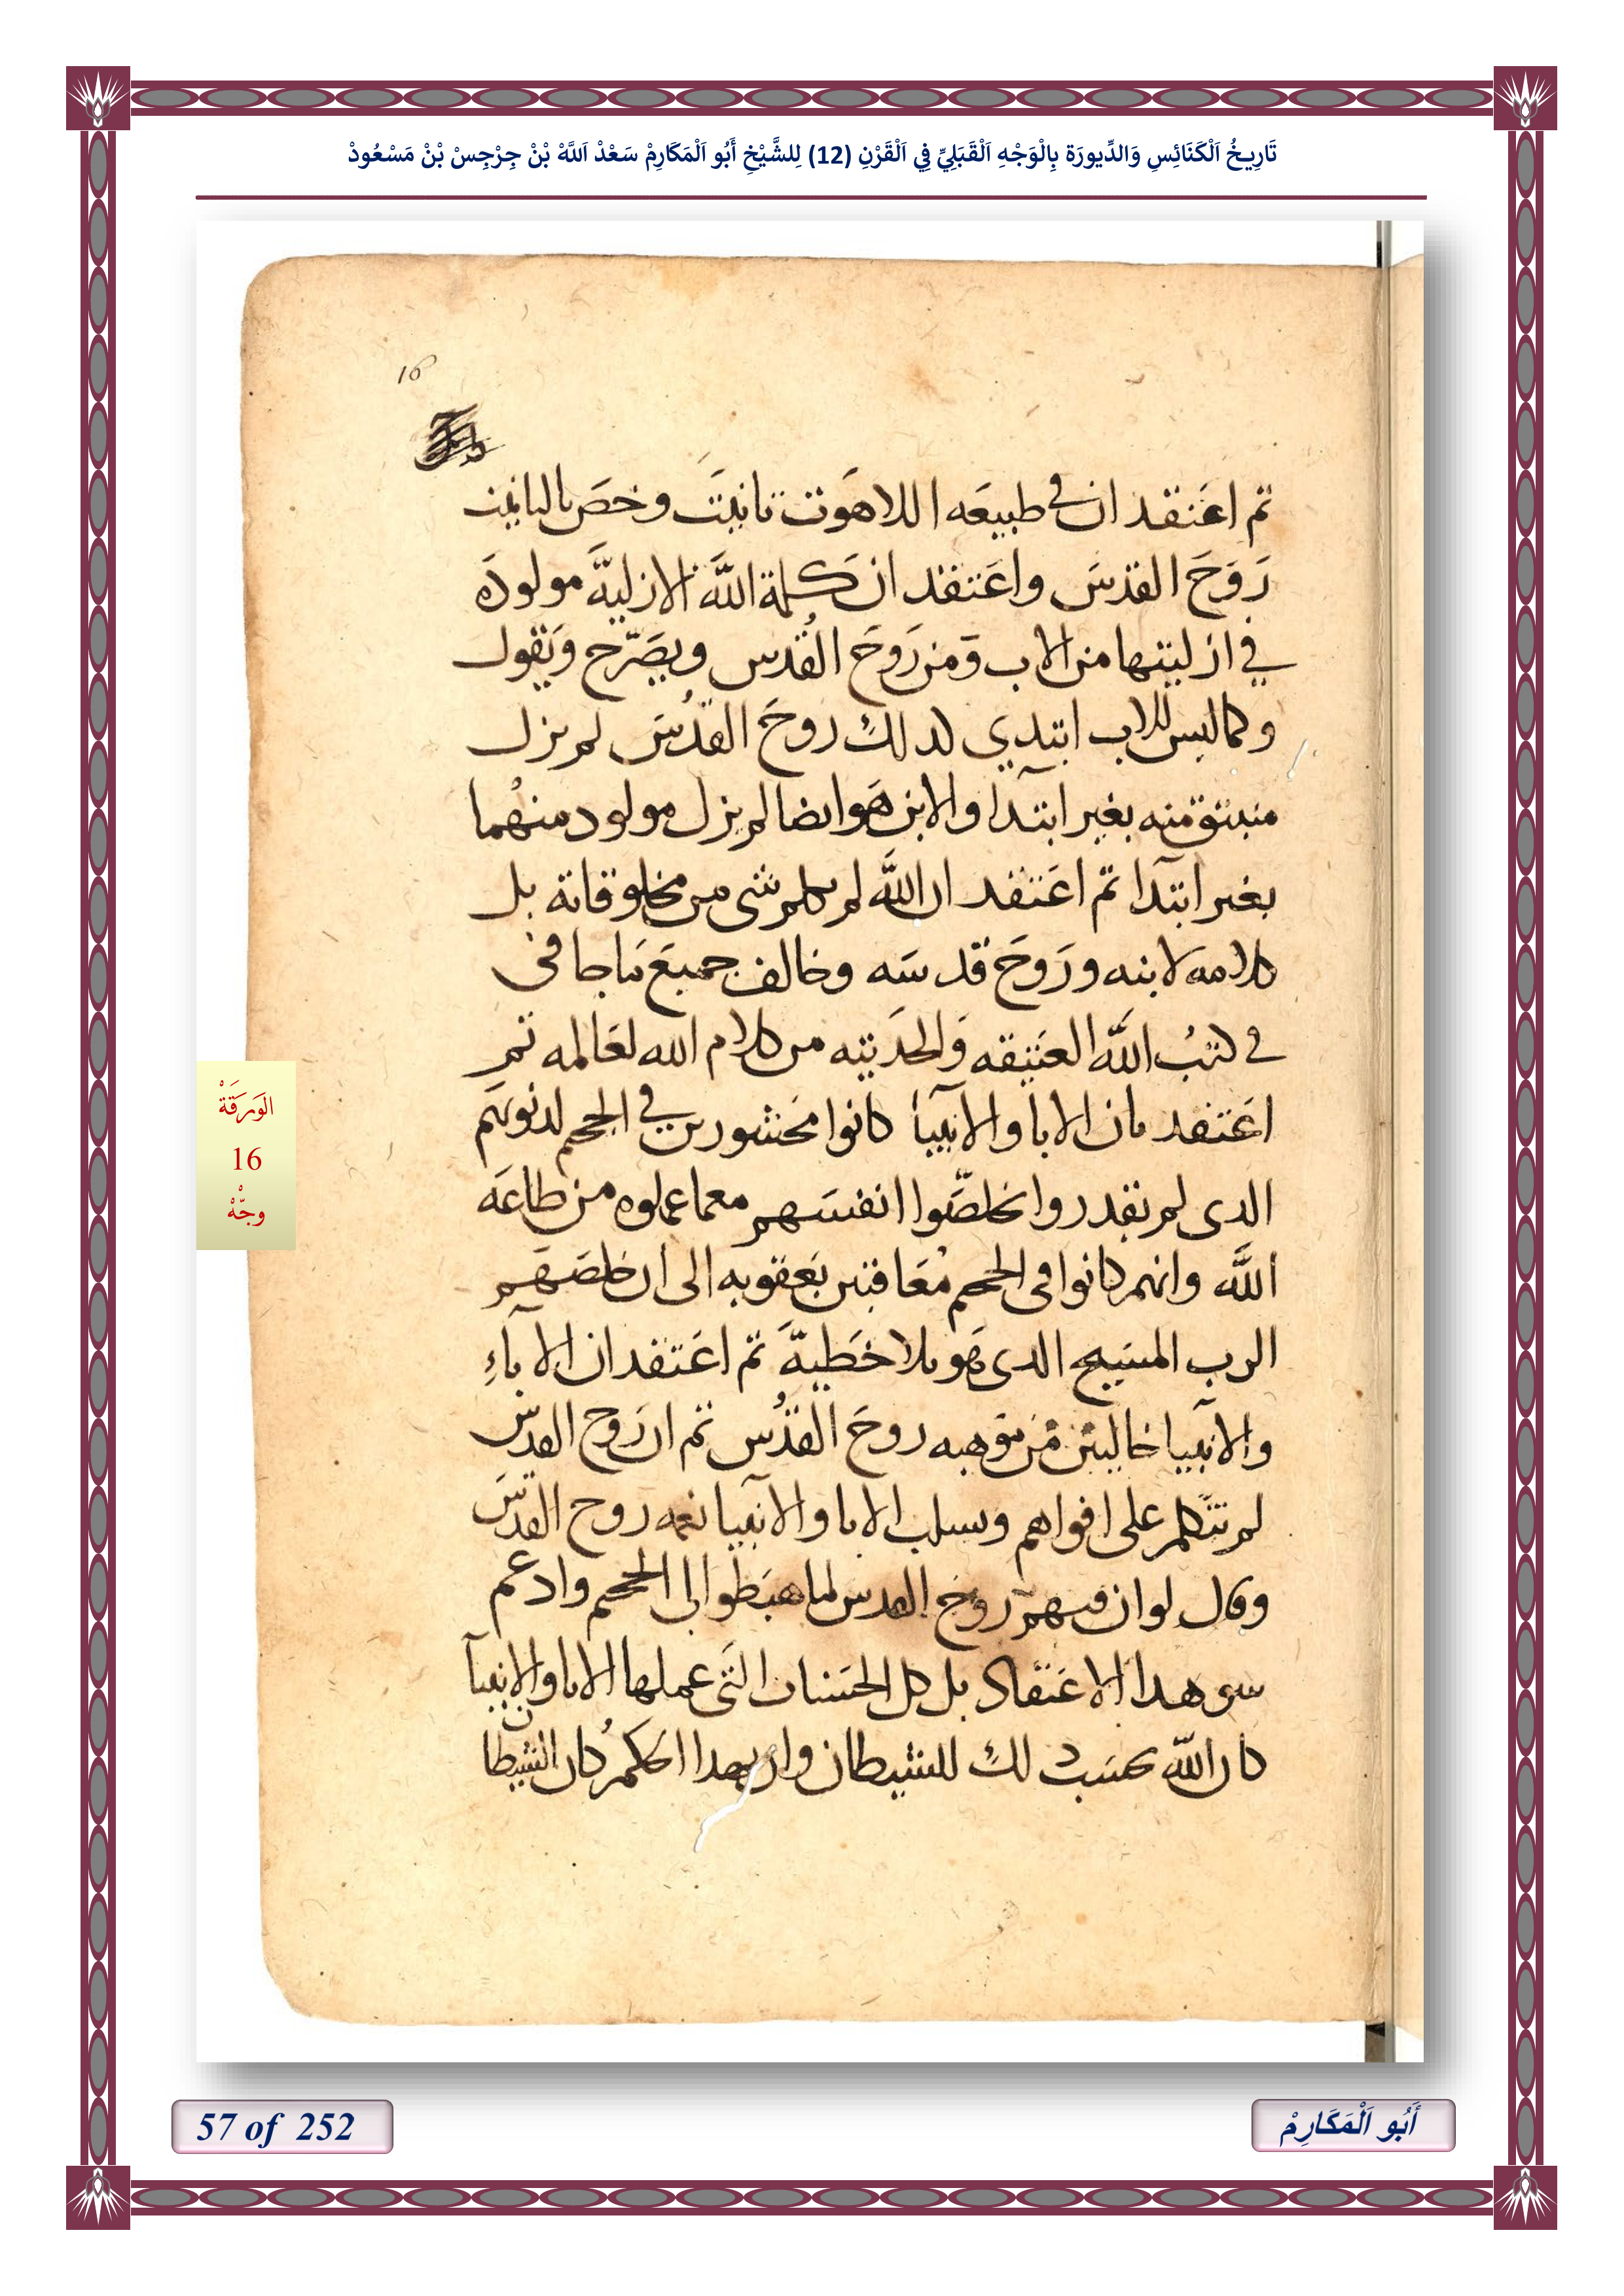 تَارِيخُ اَلْكَنَائِسِ وَالدِّيورَة بِالْوَجْهِ اَلْقَبَلِيِّ فِي اَلْقَرْنِ (12) لِلشَّيْخِ أَبُو اَلْمَكَارِمْ سَعْدْ اَللَّهْ بْنْ جِرْجِسْ بْنْ مَسْعُودْ
16
تم اعَتقد ان في طبيعَه اللاهَوت تانيَت وخصَ بالتانيت
رَوَحَ القدسَ واعَتقد ان كلمة اللَّه الازليهَّ مولودَه
في ازليتها من الاب وَمن رَوحَ القُدس ويصَرّح وَيقول
وكما ليس للاب ابتدي لدلك روحَ القدُسَ لم يزل
منبتق منه بغير ابتدآ والابن هَو ايضا لم يزل مولود منهُما
بغير ابتدآ تم اعَتقد ان اللَّه لم يكلم شى من مخلوقاته بل
كلامه لابنه ورَوحَ قدسَه وخالف جميعَ ماجا فى
في كتبُ اللَّه العَتيقه وَالحَديته من كلام الله لعَالمه تم
اعَتقد بان الابا والانبيآ كانوا مَحشورين في الجحيم لدنوبهَم
الدى لم يقدروا يخلصَّوا انفسَهم معما عملوه من طاعَه
اللَّه وانهم كانوا فى الجحيم مُعَاقبين بَعقوبه الى ان خلصَهَم
الرب المسَيح الدى هَو بلا خَطيهَّ تم اعَتقد ان الابآءِ
والانبيا خاليين من موهبه روحَ القدُس تم ان رَوح القدس
لم تتكلم على افواهم وسلب الابا والانبيا نعمه روح القدسَ
وقال لوان فيهم روح القدس لما هبَطوا الى الجحيم وادعم
سوى هدا الاعَتقاد بل كل الحسَنات التَى عملها الابا والانبيآ
كان اللَّه يحسَب دلك للشيطان وان بهدا الحكم كان الشيطان
الوَرَقَةْ
16
وجّهْ
57 of 252
أَبُو اَلْمَكَارِمْ